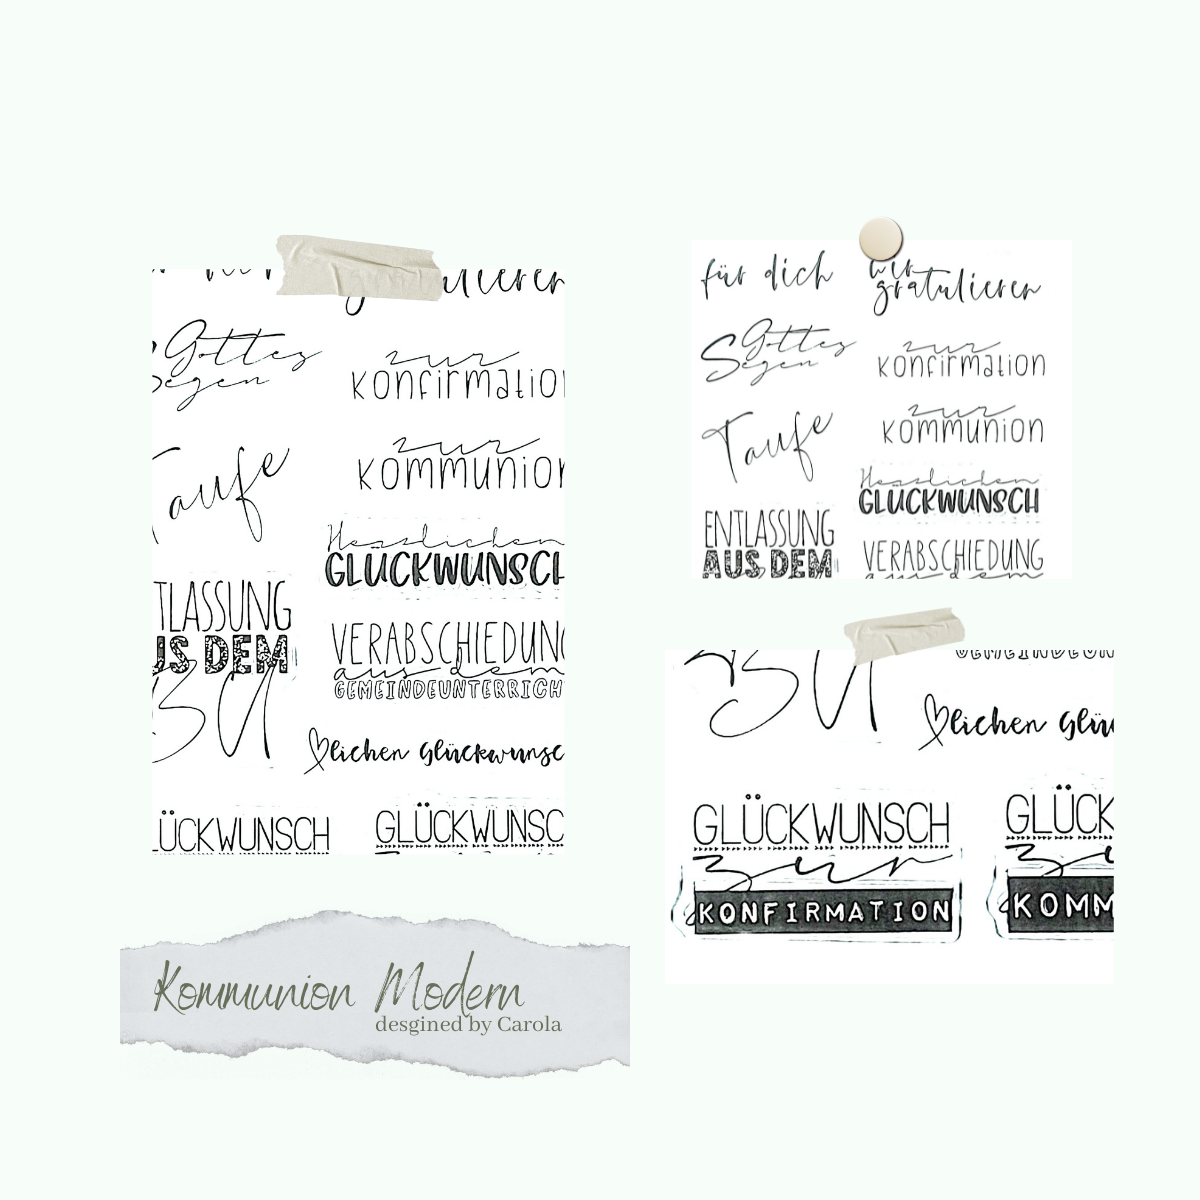 Gottes
Segen
zur
Konfirmation
Taufe
zur
Kommunion
Herzlichen
GLÜCKWUNSCH
TLASSUNG
US DEM
BU
VERABSCHIEDUNG
aus dem
GEMEINDEUNTERRICH
lichen Glückwunsc
LÜCKWUNSCH
GLÜCKWUNSC
für dich
wir
gratulieren
Gottes
Segen
zur
Konfirmation
Taufe
zur
Kommunion
Herzlichen
GLÜCKWUNSCH
ENTLASSUNG
AUS DEM
VERABSCHIEDUNG
aus dem
BU
GEMEINDEUN
lichen Glü
GLÜCKWUNSCH
zur
KONFIRMATION
GLÜCK
KOMM
Kommunion Modern
desgined by Carola